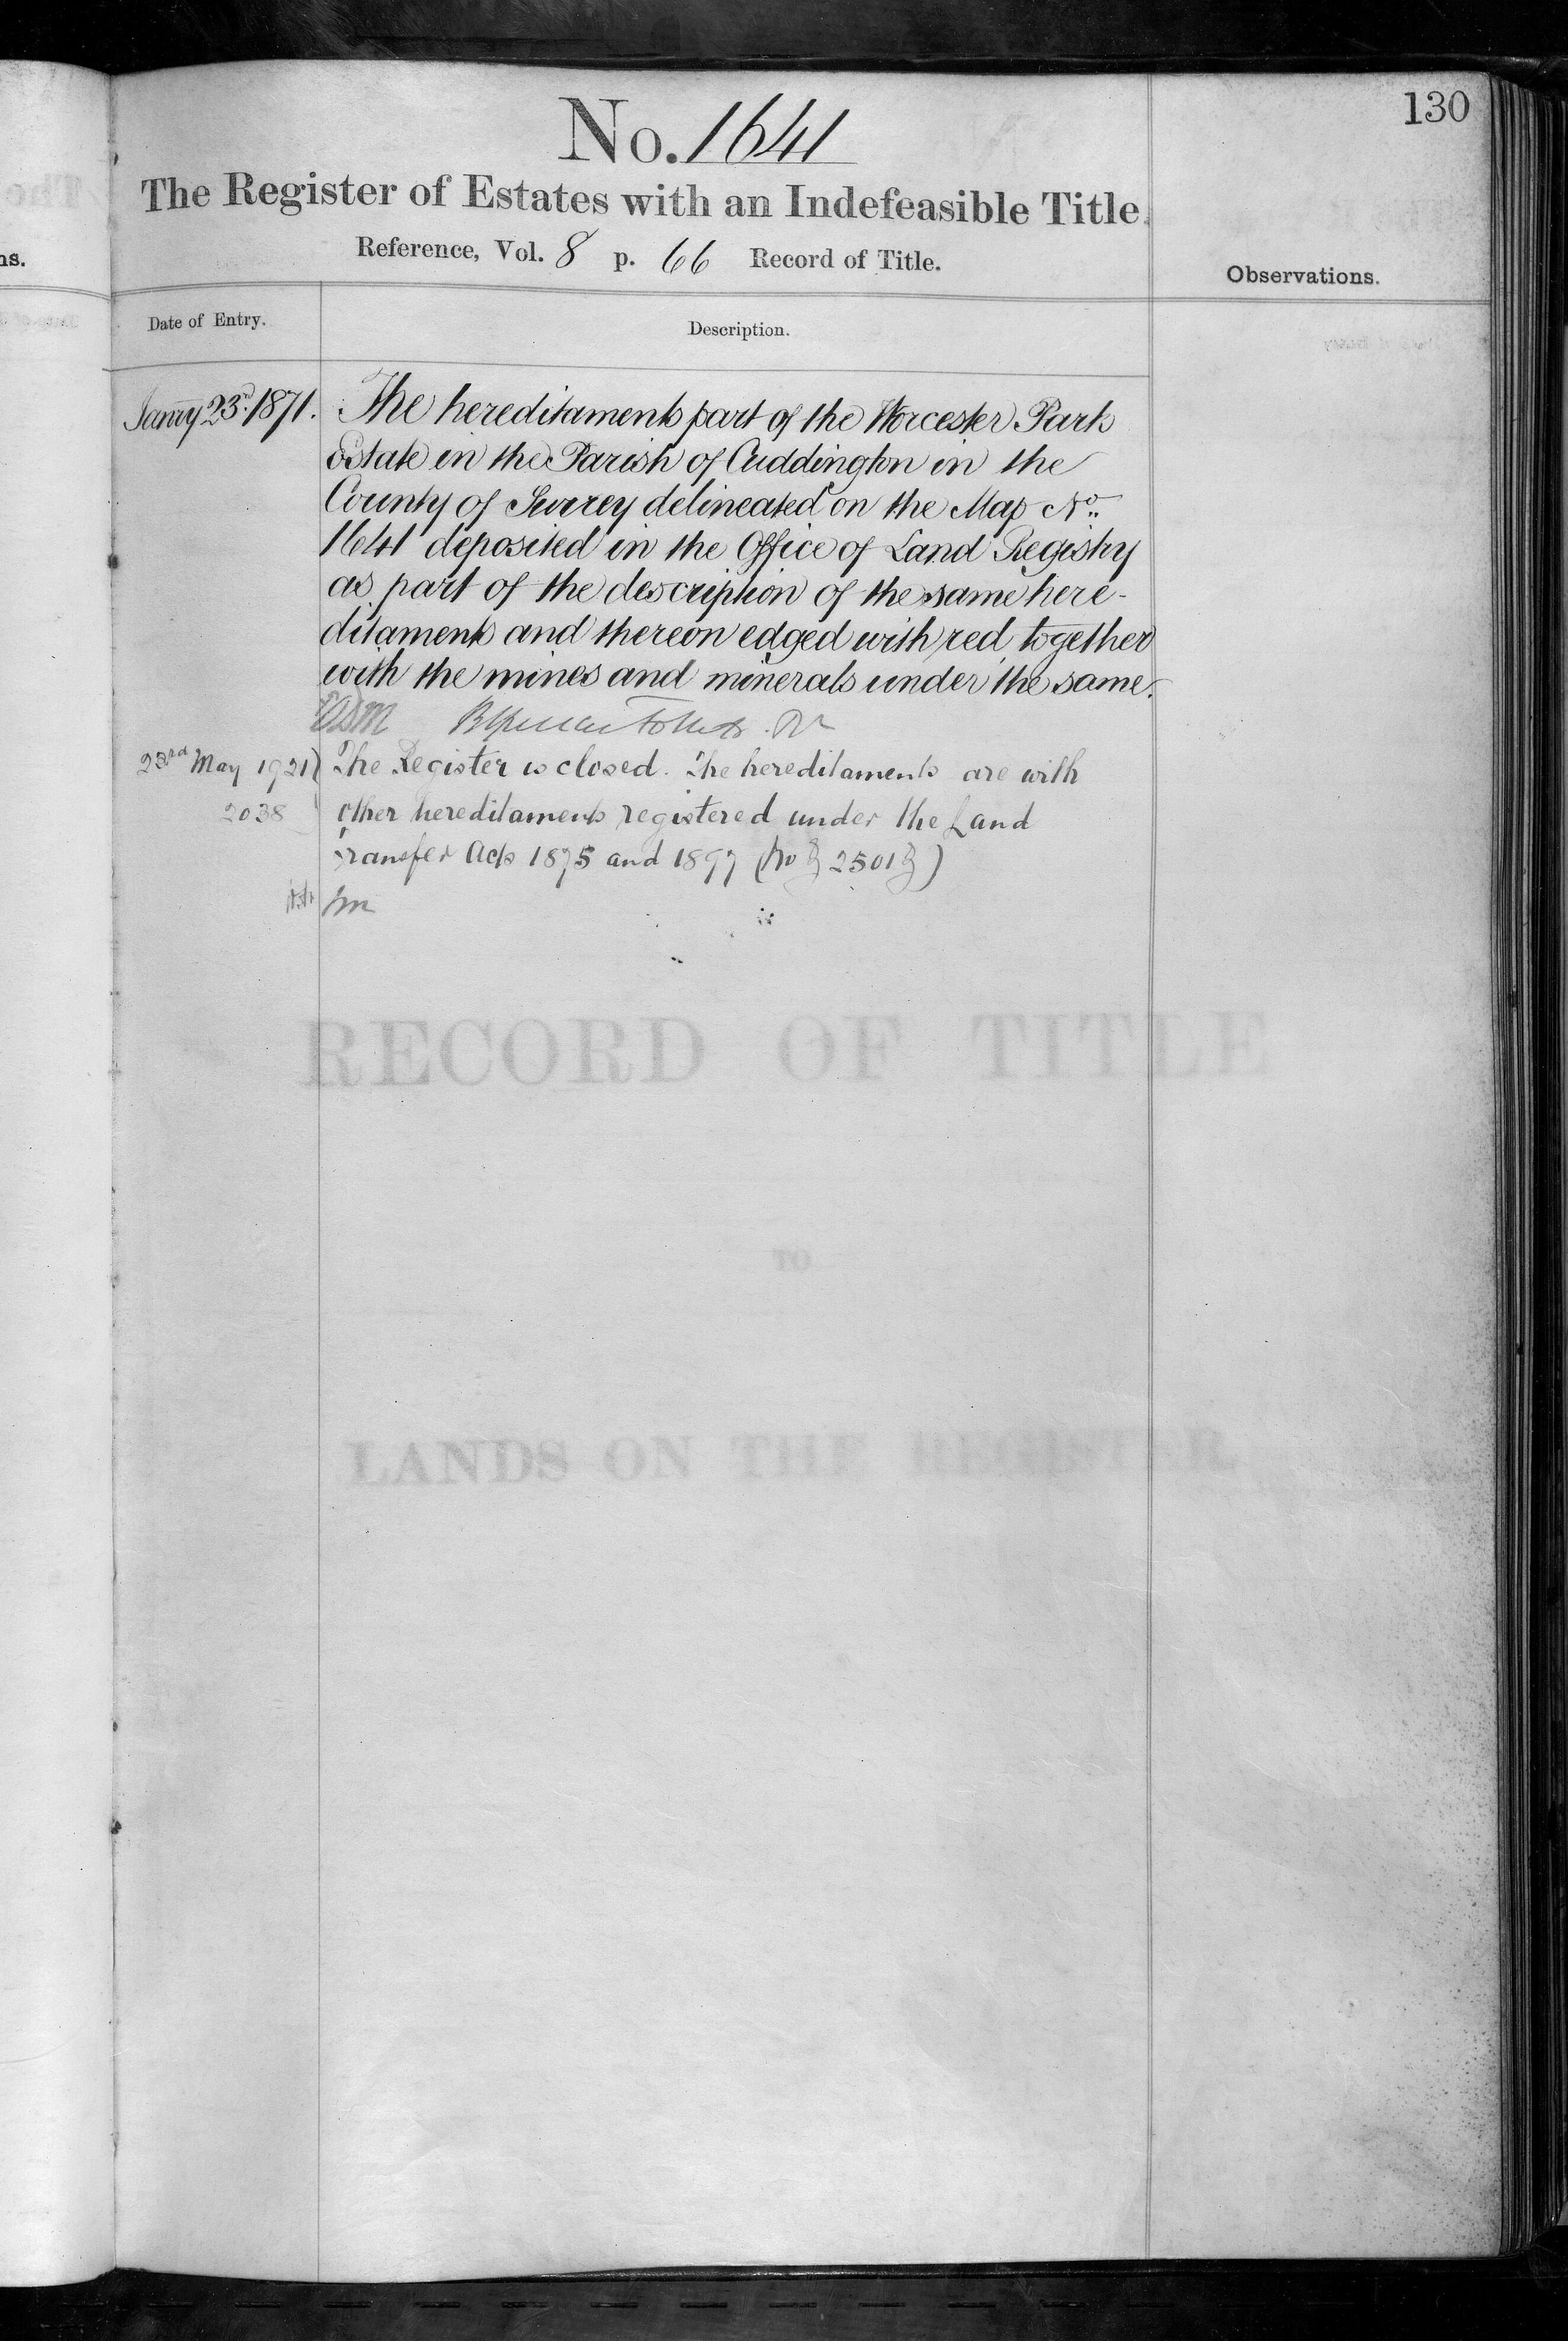 130
No. 1641
The Register of Estates with an Indefeasible Title.
Reference, Vol. 8 p. 66 Record of Title.
Observations.
Date of Entry.
Description.
Janry 23rd. 1871. The hereditaments part of the Worcester Park
Estate in the Parish of Cuddington in the
County of Surrey delineated on the Map No.
1641 deposited in the Office of Land Registry
as part of the description of the same here-
ditaments and thereon edged with red, together
with the mines and minerals under the same.
23rd May 1921 The Register is closed. The hereditaments are with
2038 other hereditaments registered under the Land
Transfer Acts 1875 and 1897 (No 2501)
RECORD OF TITLE
TO
LANDS ON THE REGISTER.
ns.